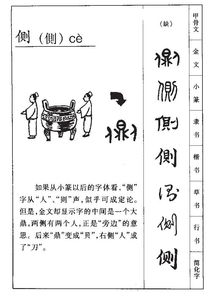 侧（側）cè
如果从小篆以后的字体看，“侧”
字从“人”、“则”声，似乎可成定论。
但是，金文却显示字的中间是一个大
鼎，两侧有两个人，正是“旁边”的意
思。后来“鼎”变成“贝”，右侧“人”成
了“刀”。
（缺）
側
側
侧
甲骨文
金文
小篆
隶书
楷书
草书
行书
简化字